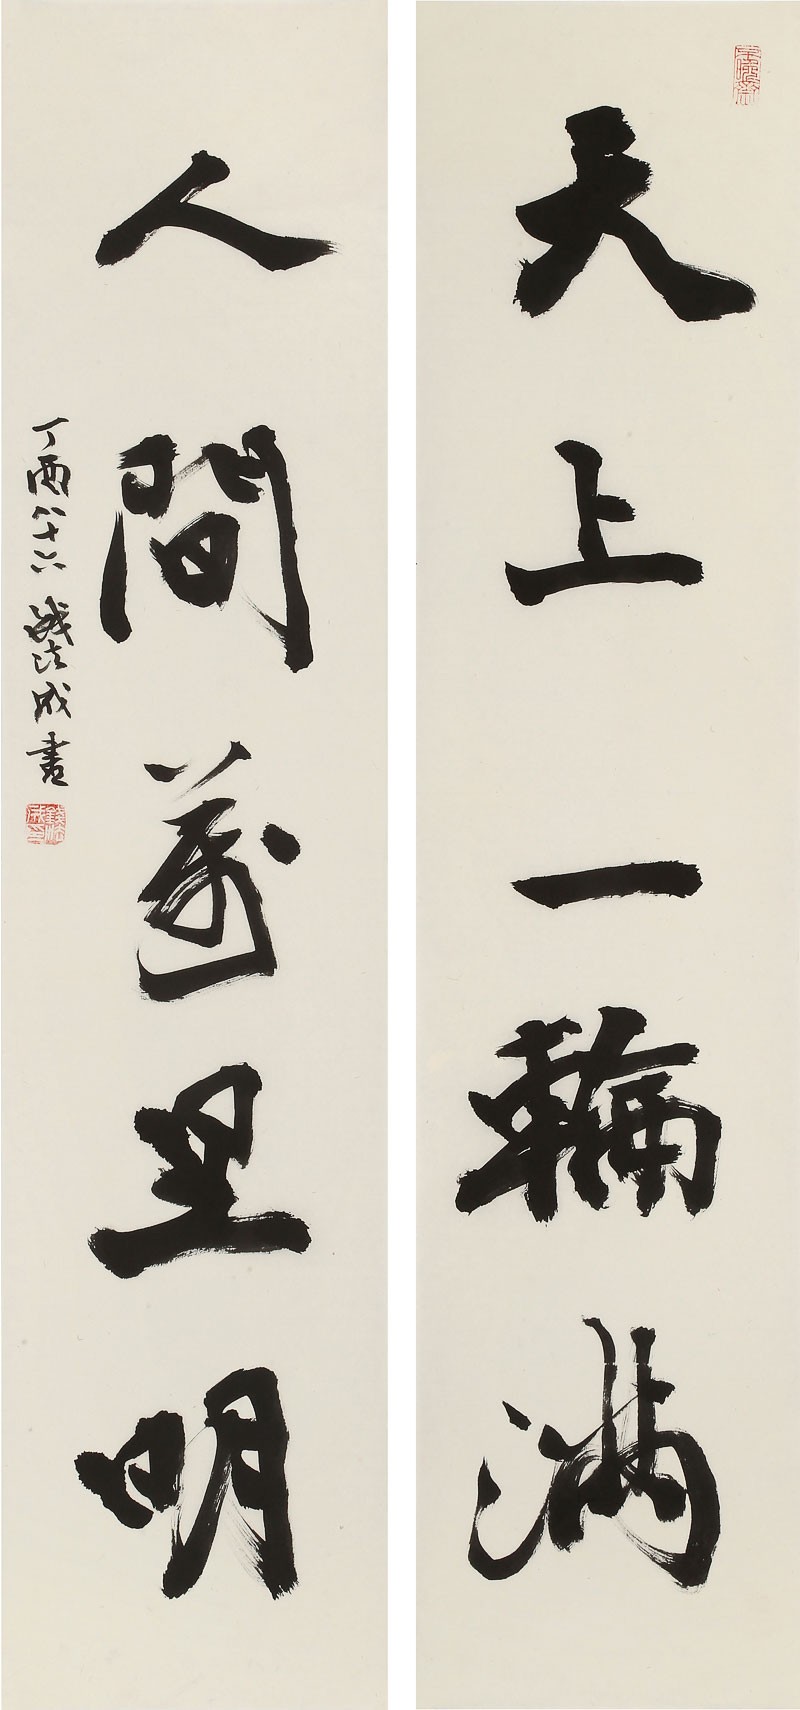 天上一輪滿
人間萬里明
丁酉八十六錢法成書